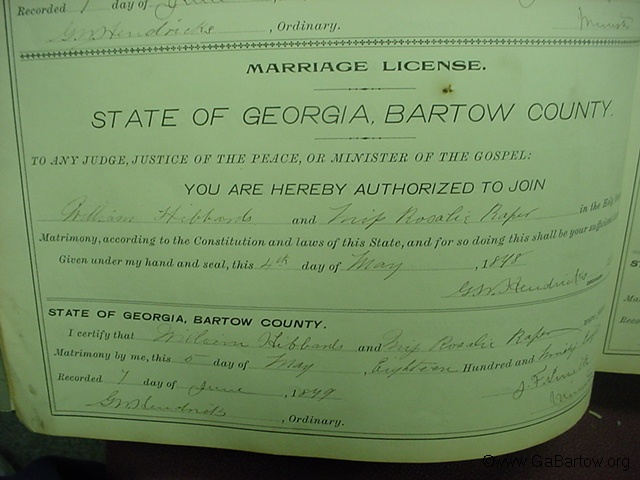 Recorded 7 day of June
G W Hendricks, Ordinary.
MARRIAGE LICENSE.
STATE OF GEORGIA, BARTOW COUNTY.
TO ANY JUDGE, JUSTICE OF THE PEACE, OR MINISTER OF THE GOSPEL:
YOU ARE HEREBY AUTHORIZED TO JOIN
William Hibbards and Miss Rosalie Raper in the Holy
Matrimony, according to the Constitution and laws of this State, and for so doing this shall be your sufficient
Given under my hand and seal, this 4th day of May, 1898
G W Hendricks
STATE OF GEORGIA, BARTOW COUNTY.
I certify that William Hibbards and Miss Rosalie Raper
Matrimony by me, this 5 day of May, Eighteen Hundred and
Recorded 7 day of June, 1899
G W Hendricks, Ordinary.
©www.GaBartow.org